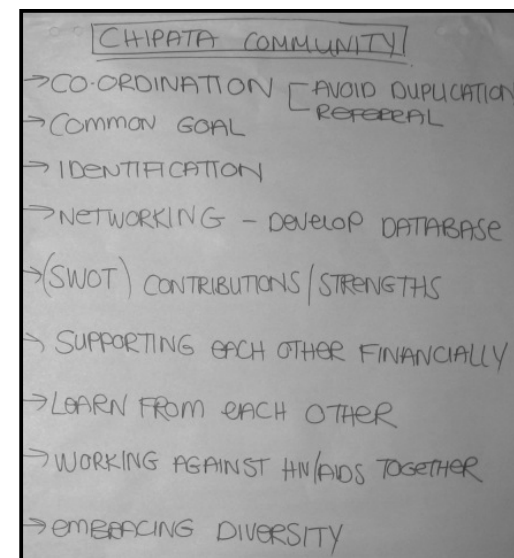 CHIPATA COMMUNITY
→ CO-ORDINATION [AVOID DUPLICATION
REFERRAL
→ COMMON GOAL
→ IDENTIFICATION
→ NETWORKING - DEVELOP DATABASE
→ (SWOT) CONTRIBUTIONS/STRENGTHS
→ SUPPORTING EACH OTHER FINANCIALLY
→ LEARN FROM EACH OTHER
→ WORKING AGAINST HIV/AIDS TOGETHER
→ EMBRACING DIVERSITY